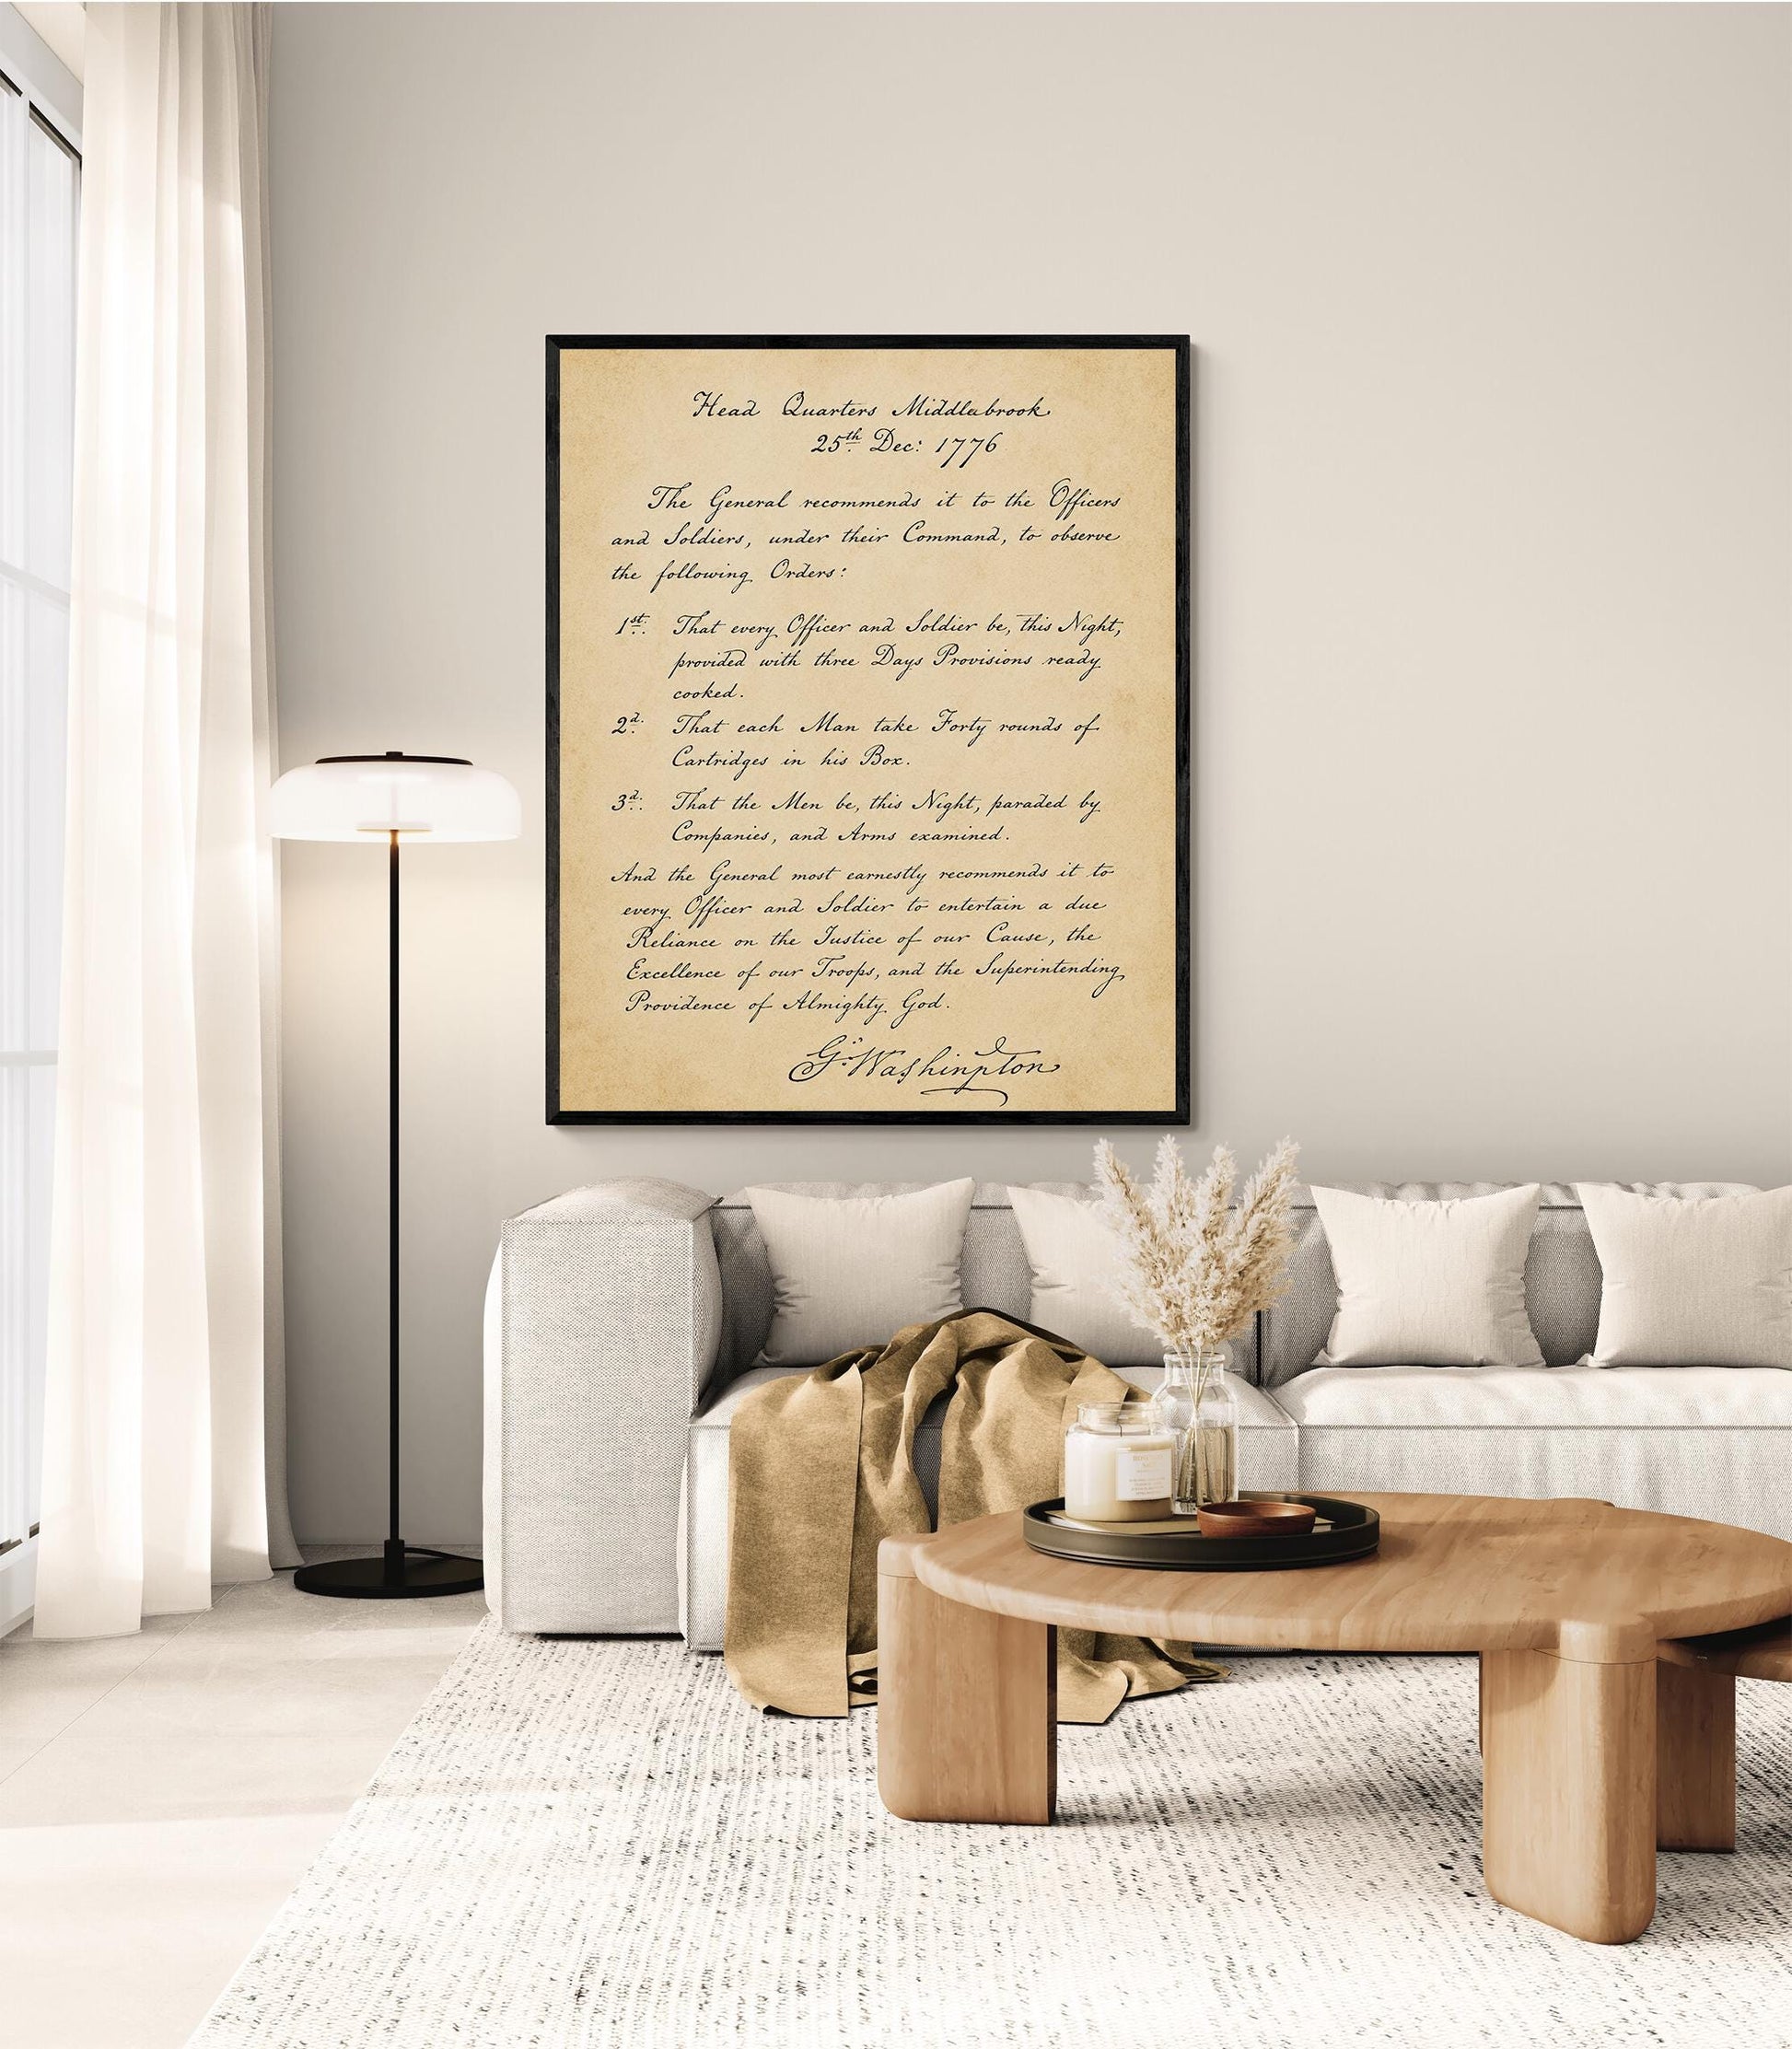 Head Quarters Middlebrook
25th. Dec: 1776
The General recommends it to the Officers
and Soldiers, under their Command, to observe
the following Orders:
1st. That every Officer and Soldier be, this Night,
provided with three Days Provisions ready
cooked.
2d. That each Man take Forty rounds of
Cartridges in his Box.
3d. That the Men be, this Night, paraded by
Companies, and Arms examined.
And the General most earnestly recommends it to
every Officer and Soldier to entertain a due
Reliance on the Justice of our Cause, the
Excellence of our Troops, and the Superintending
Providence of Almighty God.
G. Washington